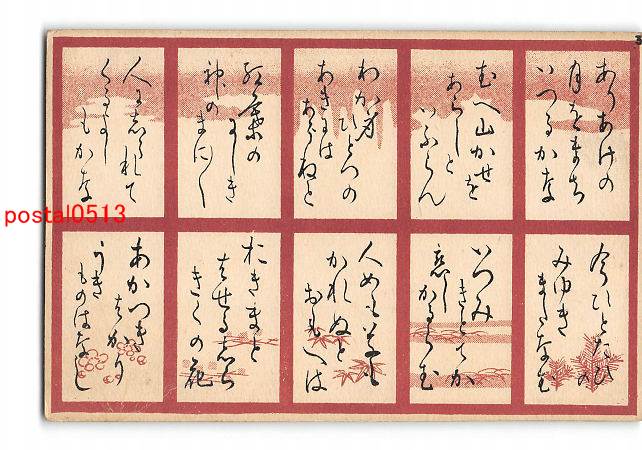 ありあけの
月をまち
いつるかな
むへ山かせを
あらしと
いふらん
わか身
ひとつの
あきには
あらねと
紅葉の
にしき
神のまに〱
人にしられて
くるよし
もかな
今ひとたひの
みゆき
またなむ
いつみ
きとてか
恋し
かるらむ
人めも草も
かれぬと
おもへは
おきまと
はせるしら
きくの花
あかつき
はかり
うき
ものはなし
postal0513